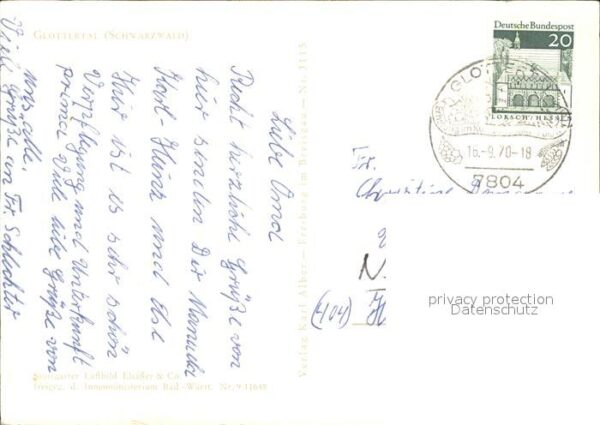 GLOTTERTAL (SCHWARZWALD)
Liebe Oma
Recht herzliche Grüße von
hier senden Dir Manuela
Karl-Heinz und Else
Hier ist es sehr schön
Verpflegung und Unterkunft
prima. Viele liebe Grüße von
uns alle.
Viele Grüße von Fr. Schlechter
Stuttgarter Luftbild Elsäßer & Co.
freigeg. d. Innenministerium Bad.-Württ. Nr. 9/11648
Verlag Karl Alber – Freiburg im Breisgau – Nr. 3115
Deutsche Bundespost
20
LORSCH/HESSEN
16.-9.70-18
7804
Fr.
Christine
N.
(404)
privacy protection
Datenschutz